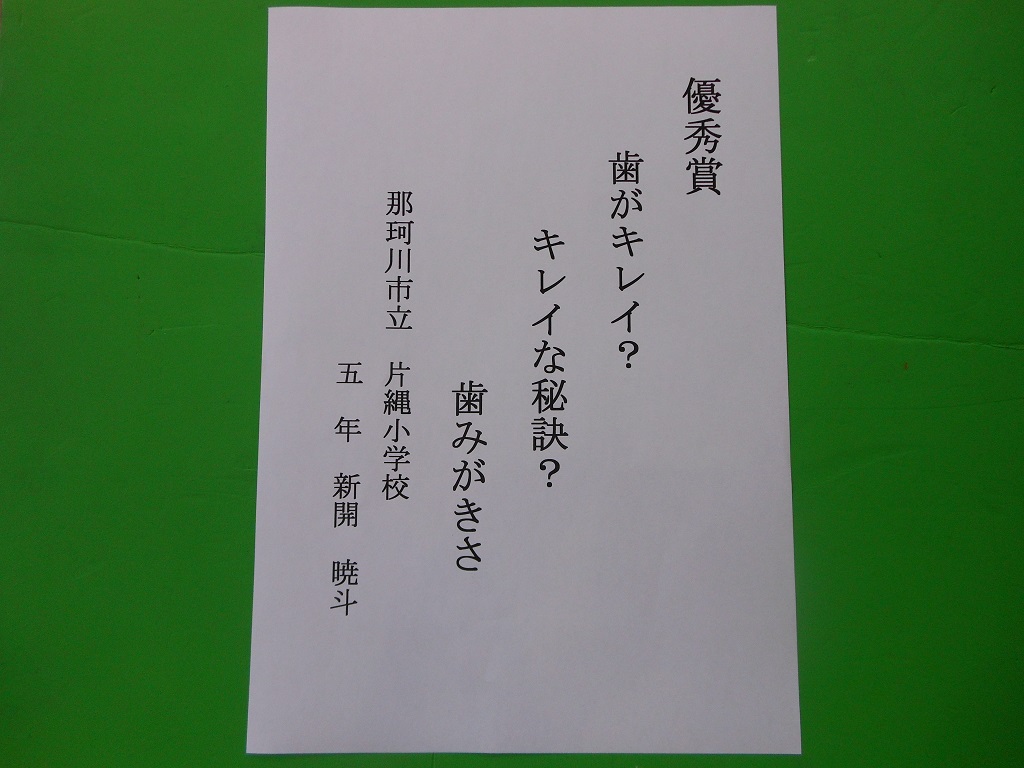 優秀賞
歯がキレイ？
キレイな秘訣？
歯みがきさ
那珂川市立　片縄小学校
五　年　新開　暁斗